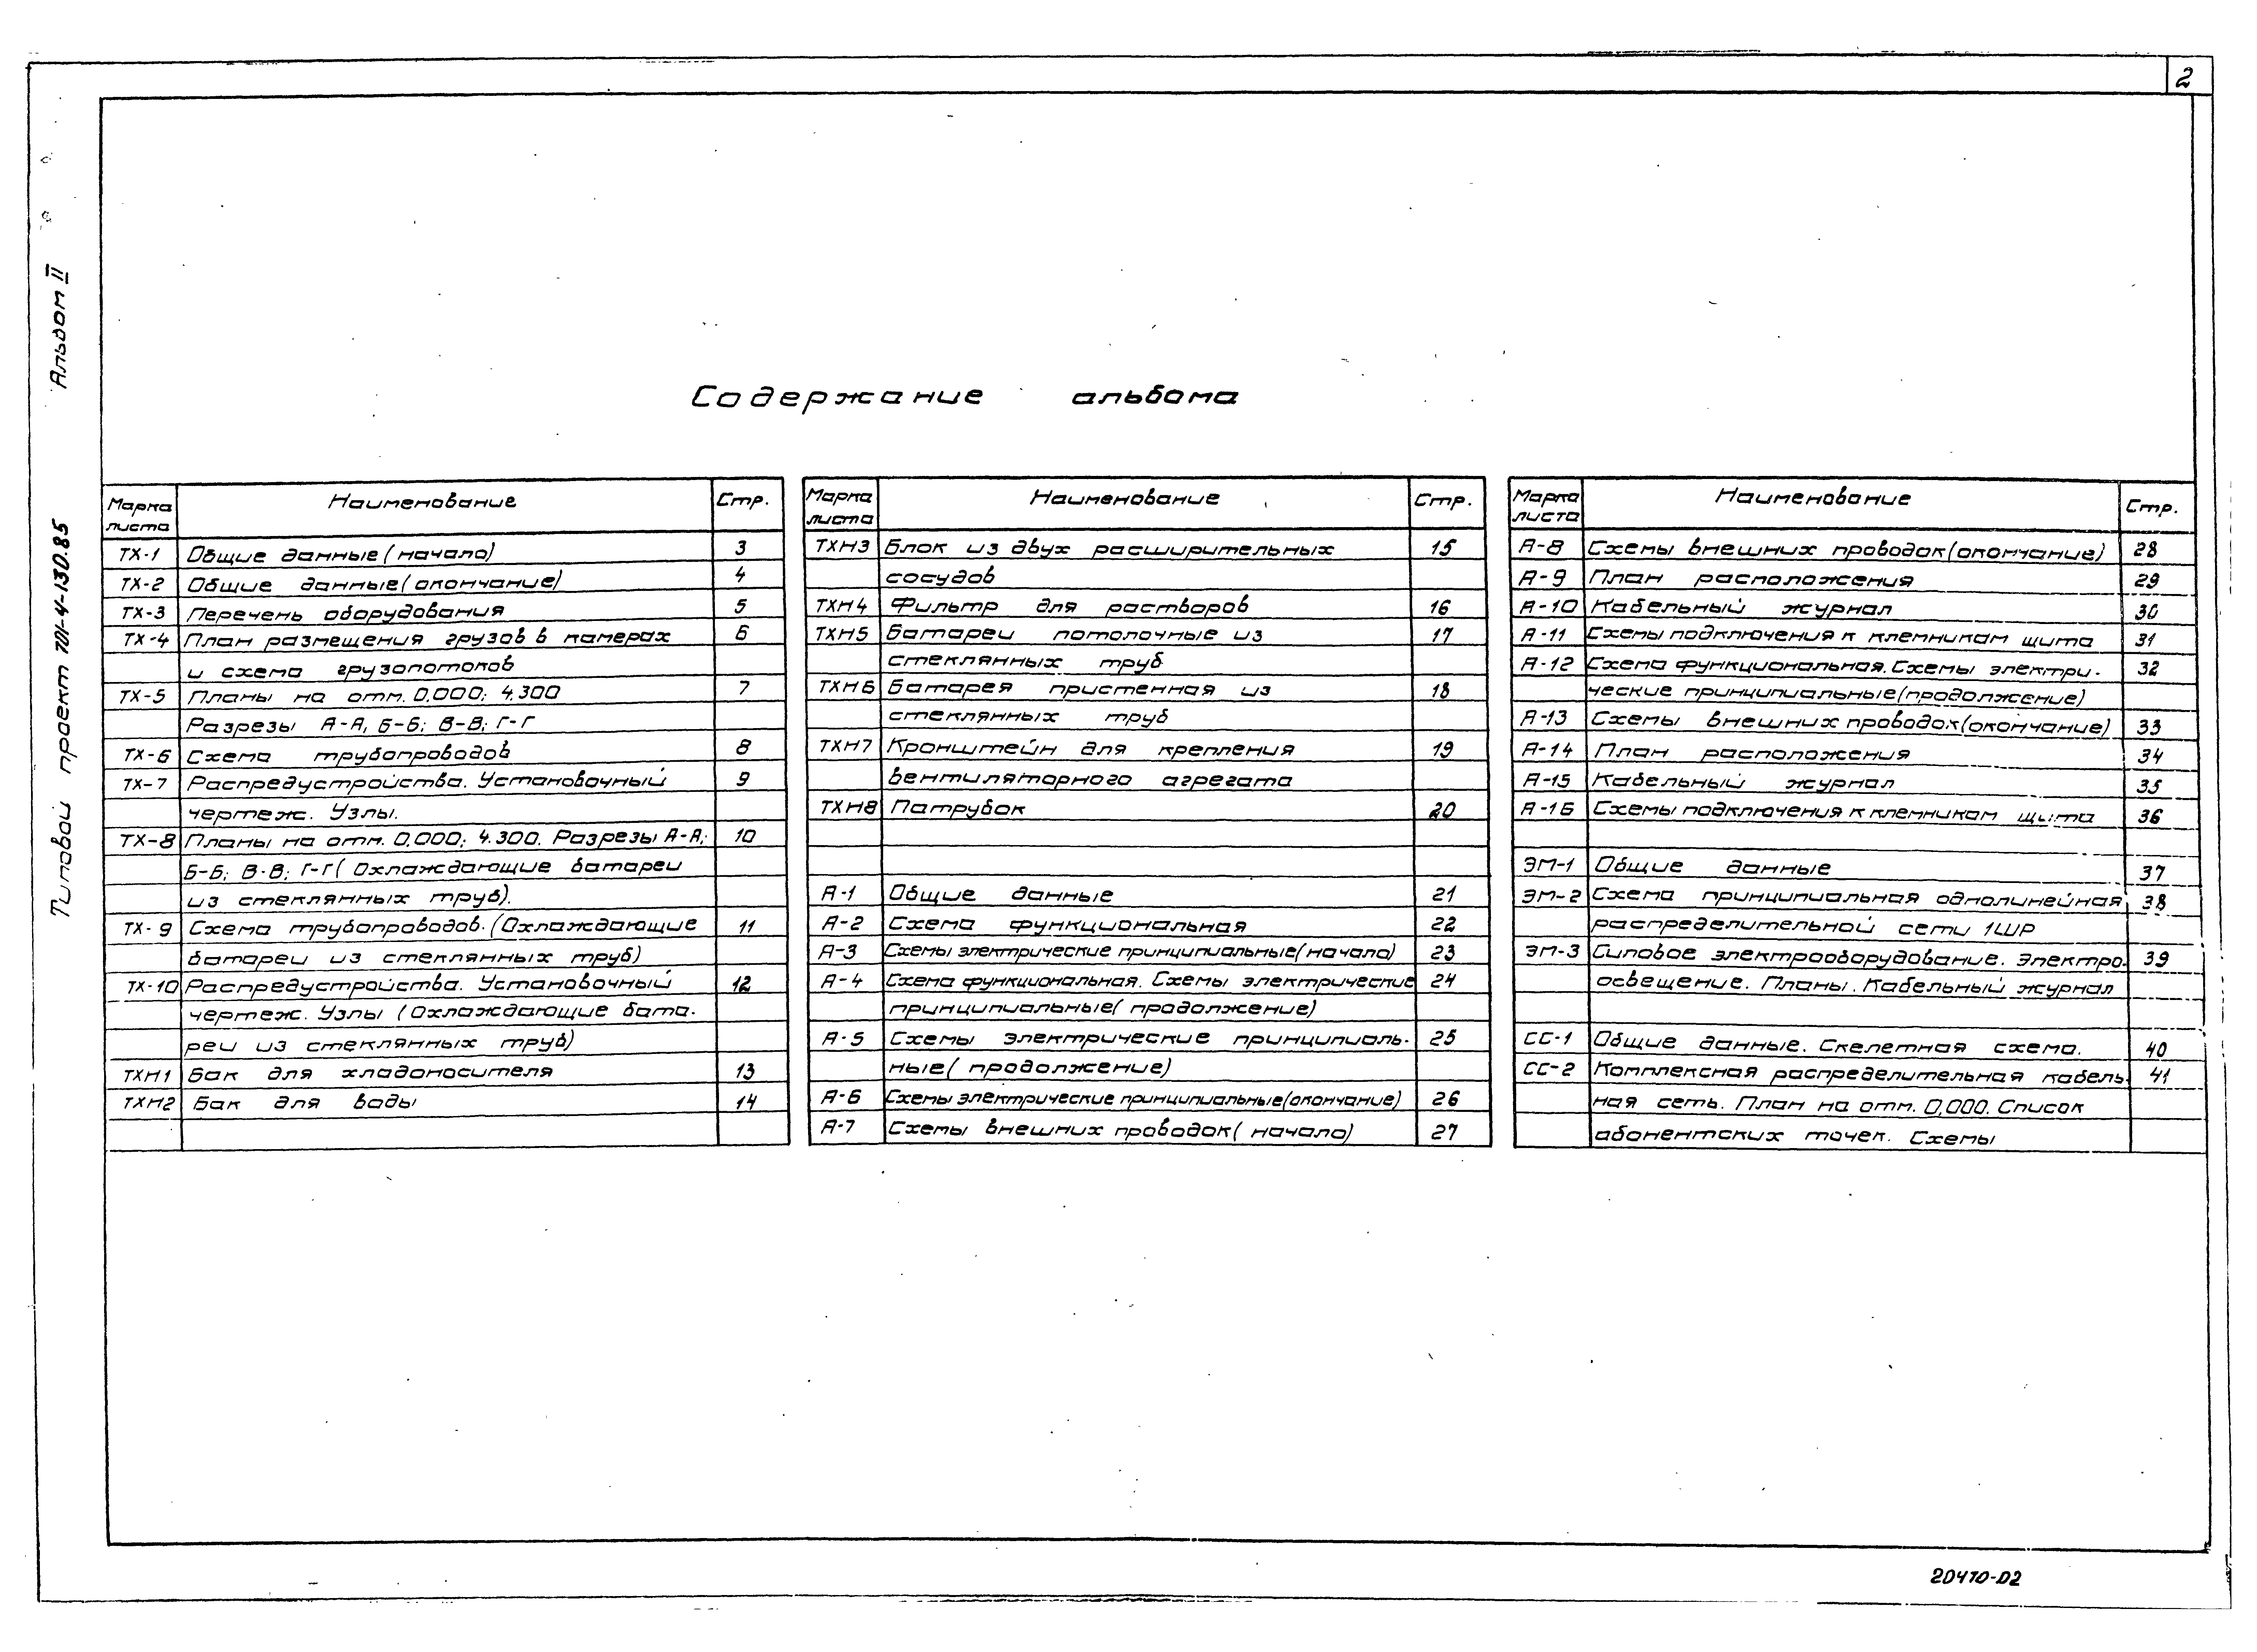 2
Альбом II
Типовой проект 701-4-130.85
Содержание альбома
Марка листа Наименование Стр.
ТХ-1 Общие данные (начало) 3
ТХ-2 Общие данные (окончание) 4
ТХ-3 Перечень оборудования 5
ТХ-4 План размещения грузов в камерах 6
и схема грузопотоков
ТХ-5 Планы на отм. 0,000; 4.300 7
Разрезы А-А, Б-Б; В-В; Г-Г
ТХ-6 Схема трубопроводов 8
ТХ-7 Распредустройства. Установочный 9
чертеж. Узлы.
ТХ-8 Планы на отм. 0,000; 4.300. Разрезы А-А; 10
Б-Б; В-В; Г-Г (Охлаждающие батареи
из стеклянных труб).
ТХ-9 Схема трубопроводов. (Охлаждающие 11
батареи из стеклянных труб)
ТХ-10 Распредустройства. Установочный 12
чертеж. Узлы (Охлаждающие бата-
реи из стеклянных труб)
ТХН1 Бак для хладоносителя 13
ТХН2 Бак для воды 14
Марка листа Наименование Стр.
ТХН3 Блок из двух расширительных 15
сосудов
ТХН4 Фильтр для растворов 16
ТХН5 Батареи потолочные из 17
стеклянных труб
ТХН6 Батарея пристенная из 18
стеклянных труб
ТХН7 Кронштейн для крепления 19
вентиляторного агрегата
ТХН8 Патрубок 20
А-1 Общие данные 21
А-2 Схема функциональная 22
А-3 Схемы электрические принципиальные (начало) 23
А-4 Схема функциональная. Схемы электрические 24
принципиальные (продолжение)
А-5 Схемы электрические принципиаль- 25
ные (продолжение)
А-6 Схемы электрические принципиальные (окончание) 26
А-7 Схемы внешних проводок (начало) 27
Марка листа Наименование Стр.
А-8 Схемы внешних проводок (окончание) 28
А-9 План расположения 29
А-10 Кабельный журнал 30
А-11 Схемы подключения к клемникам щита 31
А-12 Схема функциональная. Схемы электри- 32
ческие принципиальные (продолжение)
А-13 Схемы внешних проводок (окончание) 33
А-14 План расположения 34
А-15 Кабельный журнал 35
А-16 Схемы подключения к клемникам щита 36
ЭМ-1 Общие данные 37
ЭМ-2 Схема принципиальная однолинейная 38
распределительной сети 1ШР
ЭМ-3 Силовое электрооборудование. Электро- 39
освещение. Планы. Кабельный журнал
СС-1 Общие данные. Скелетная схема. 40
СС-2 Комплексная распределительная кабель- 41
ная сеть. План на отм. 0,000. Список
абонентских точек. Схемы
20410-02